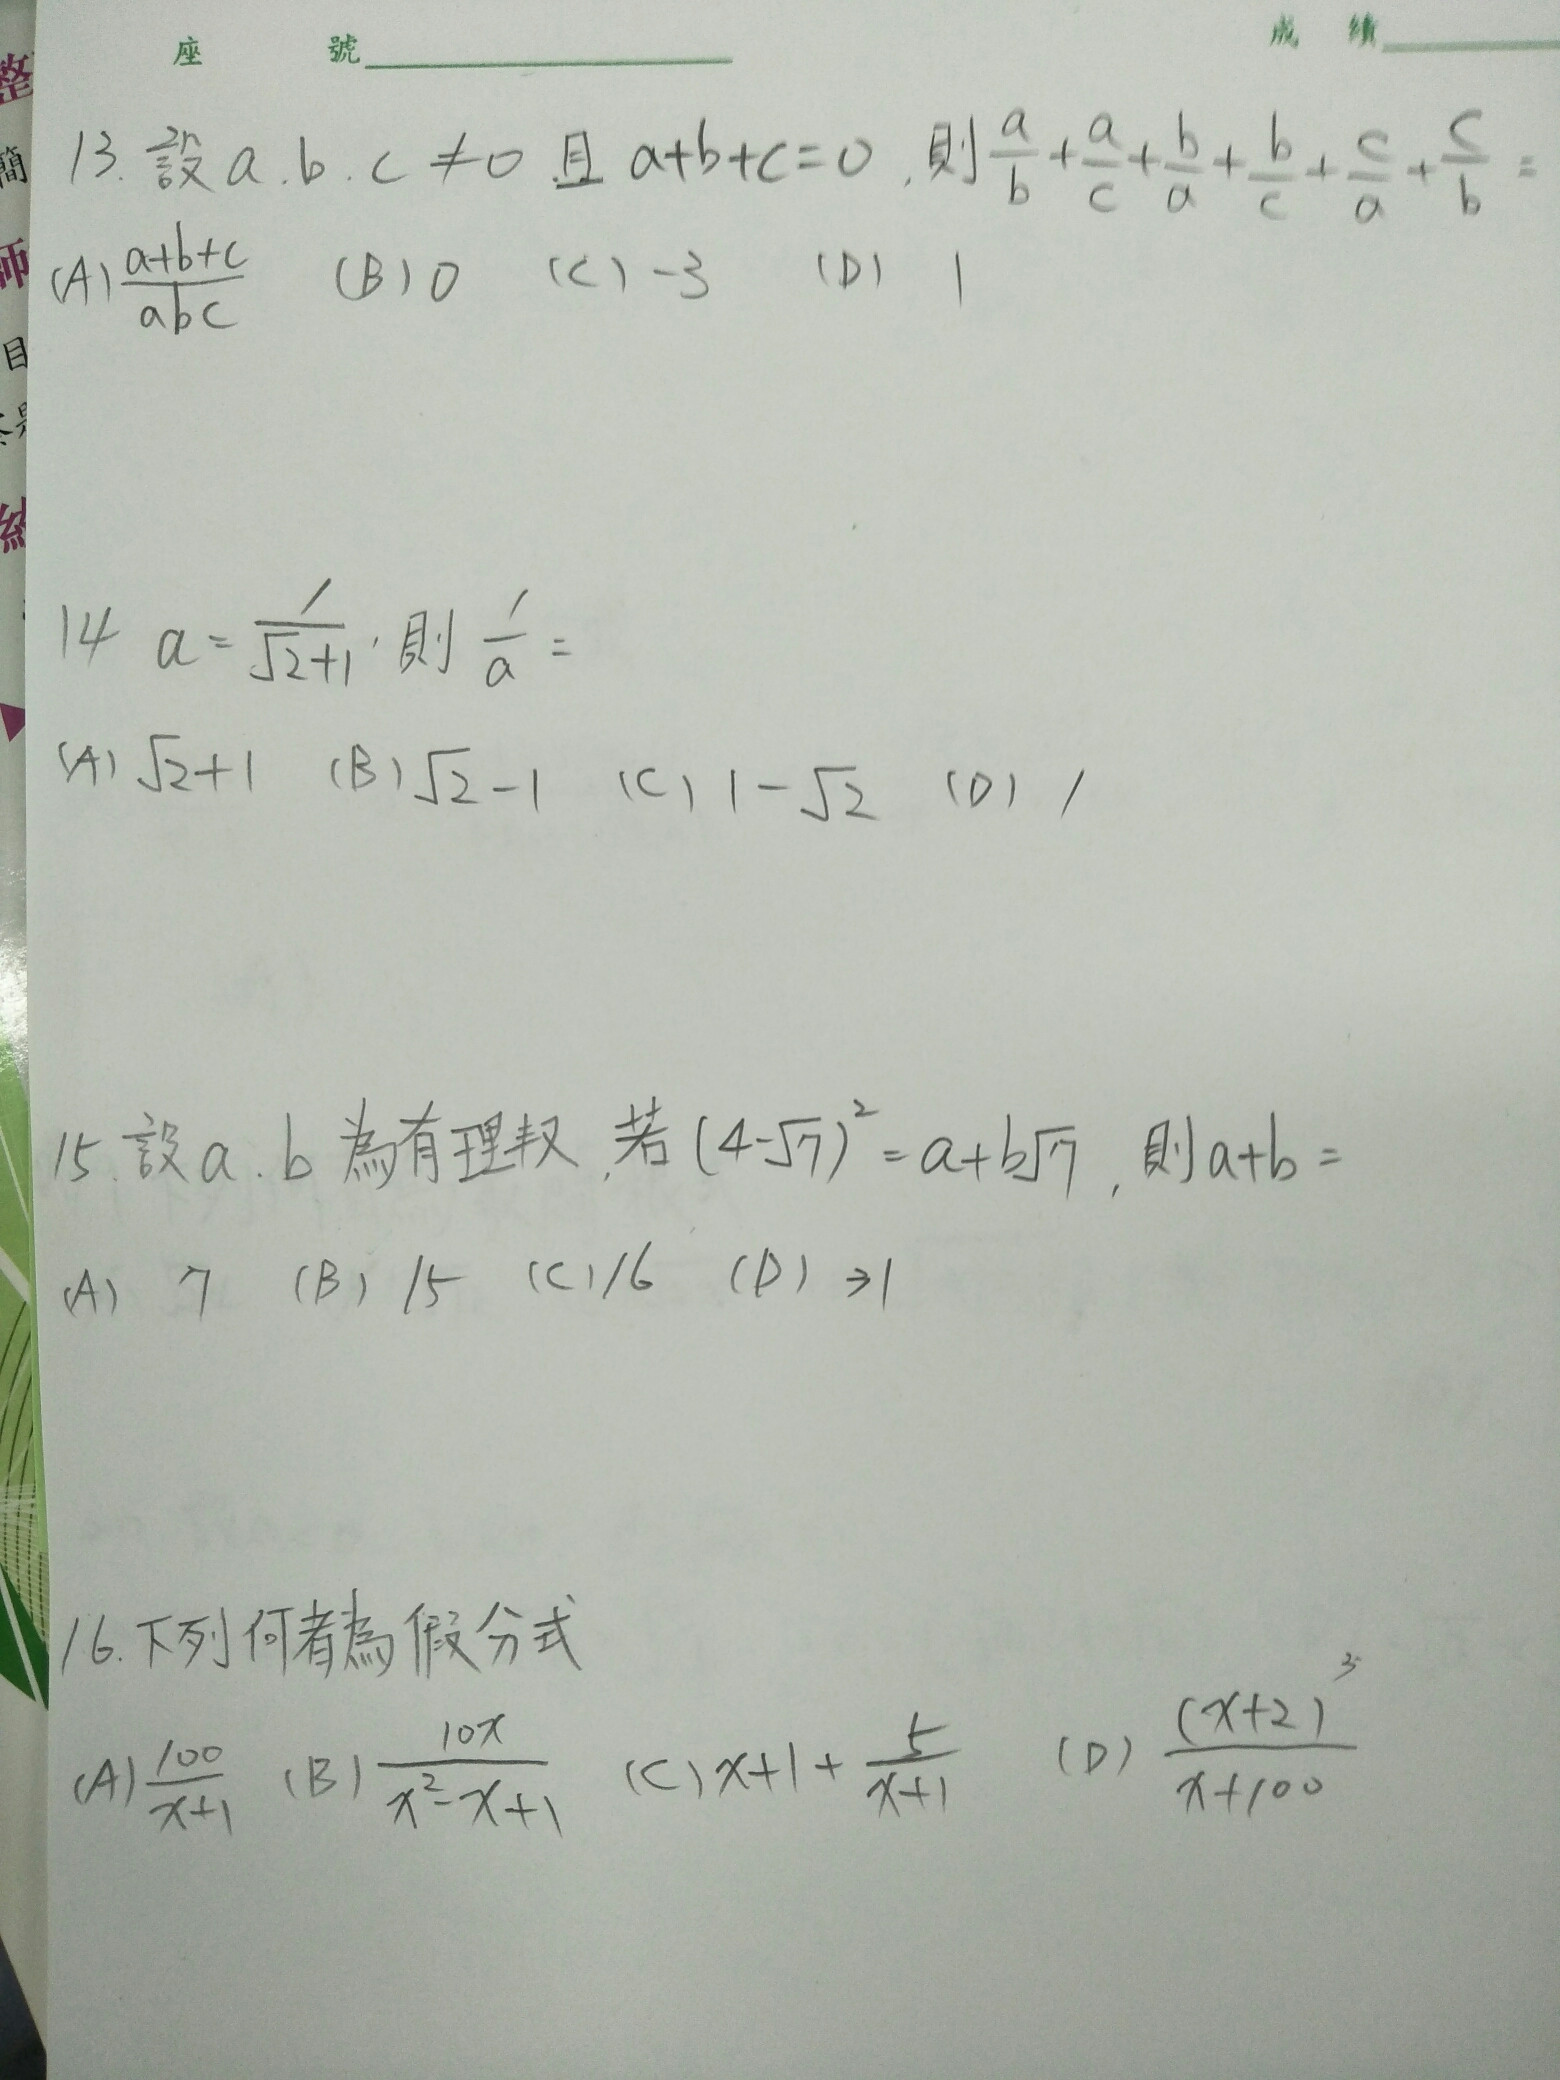 座 號 成 績
13. 設 a.b.c ≠0 且 a+b+c=0,則 a/b + a/c + b/a + b/c + c/a + c/b =
(A) a+b+c/abc (B) 0 (C) -3 (D) 1
14 a = 1/√2+1,則 1/a =
(A) √2+1 (B) √2-1 (C) 1-√2 (D) 1
15. 設 a.b 為有理数,若 (4-√7)² = a+b√7,則 a+b =
(A) 7 (B) 15 (C) 16 (D) 31
16.下列何者為假分式
(A) 100/x+1 (B) 10x/x²-x+1 (C) x+1+ 5/x+1 (D) (x+2)³/x+100
整
簡
師
目